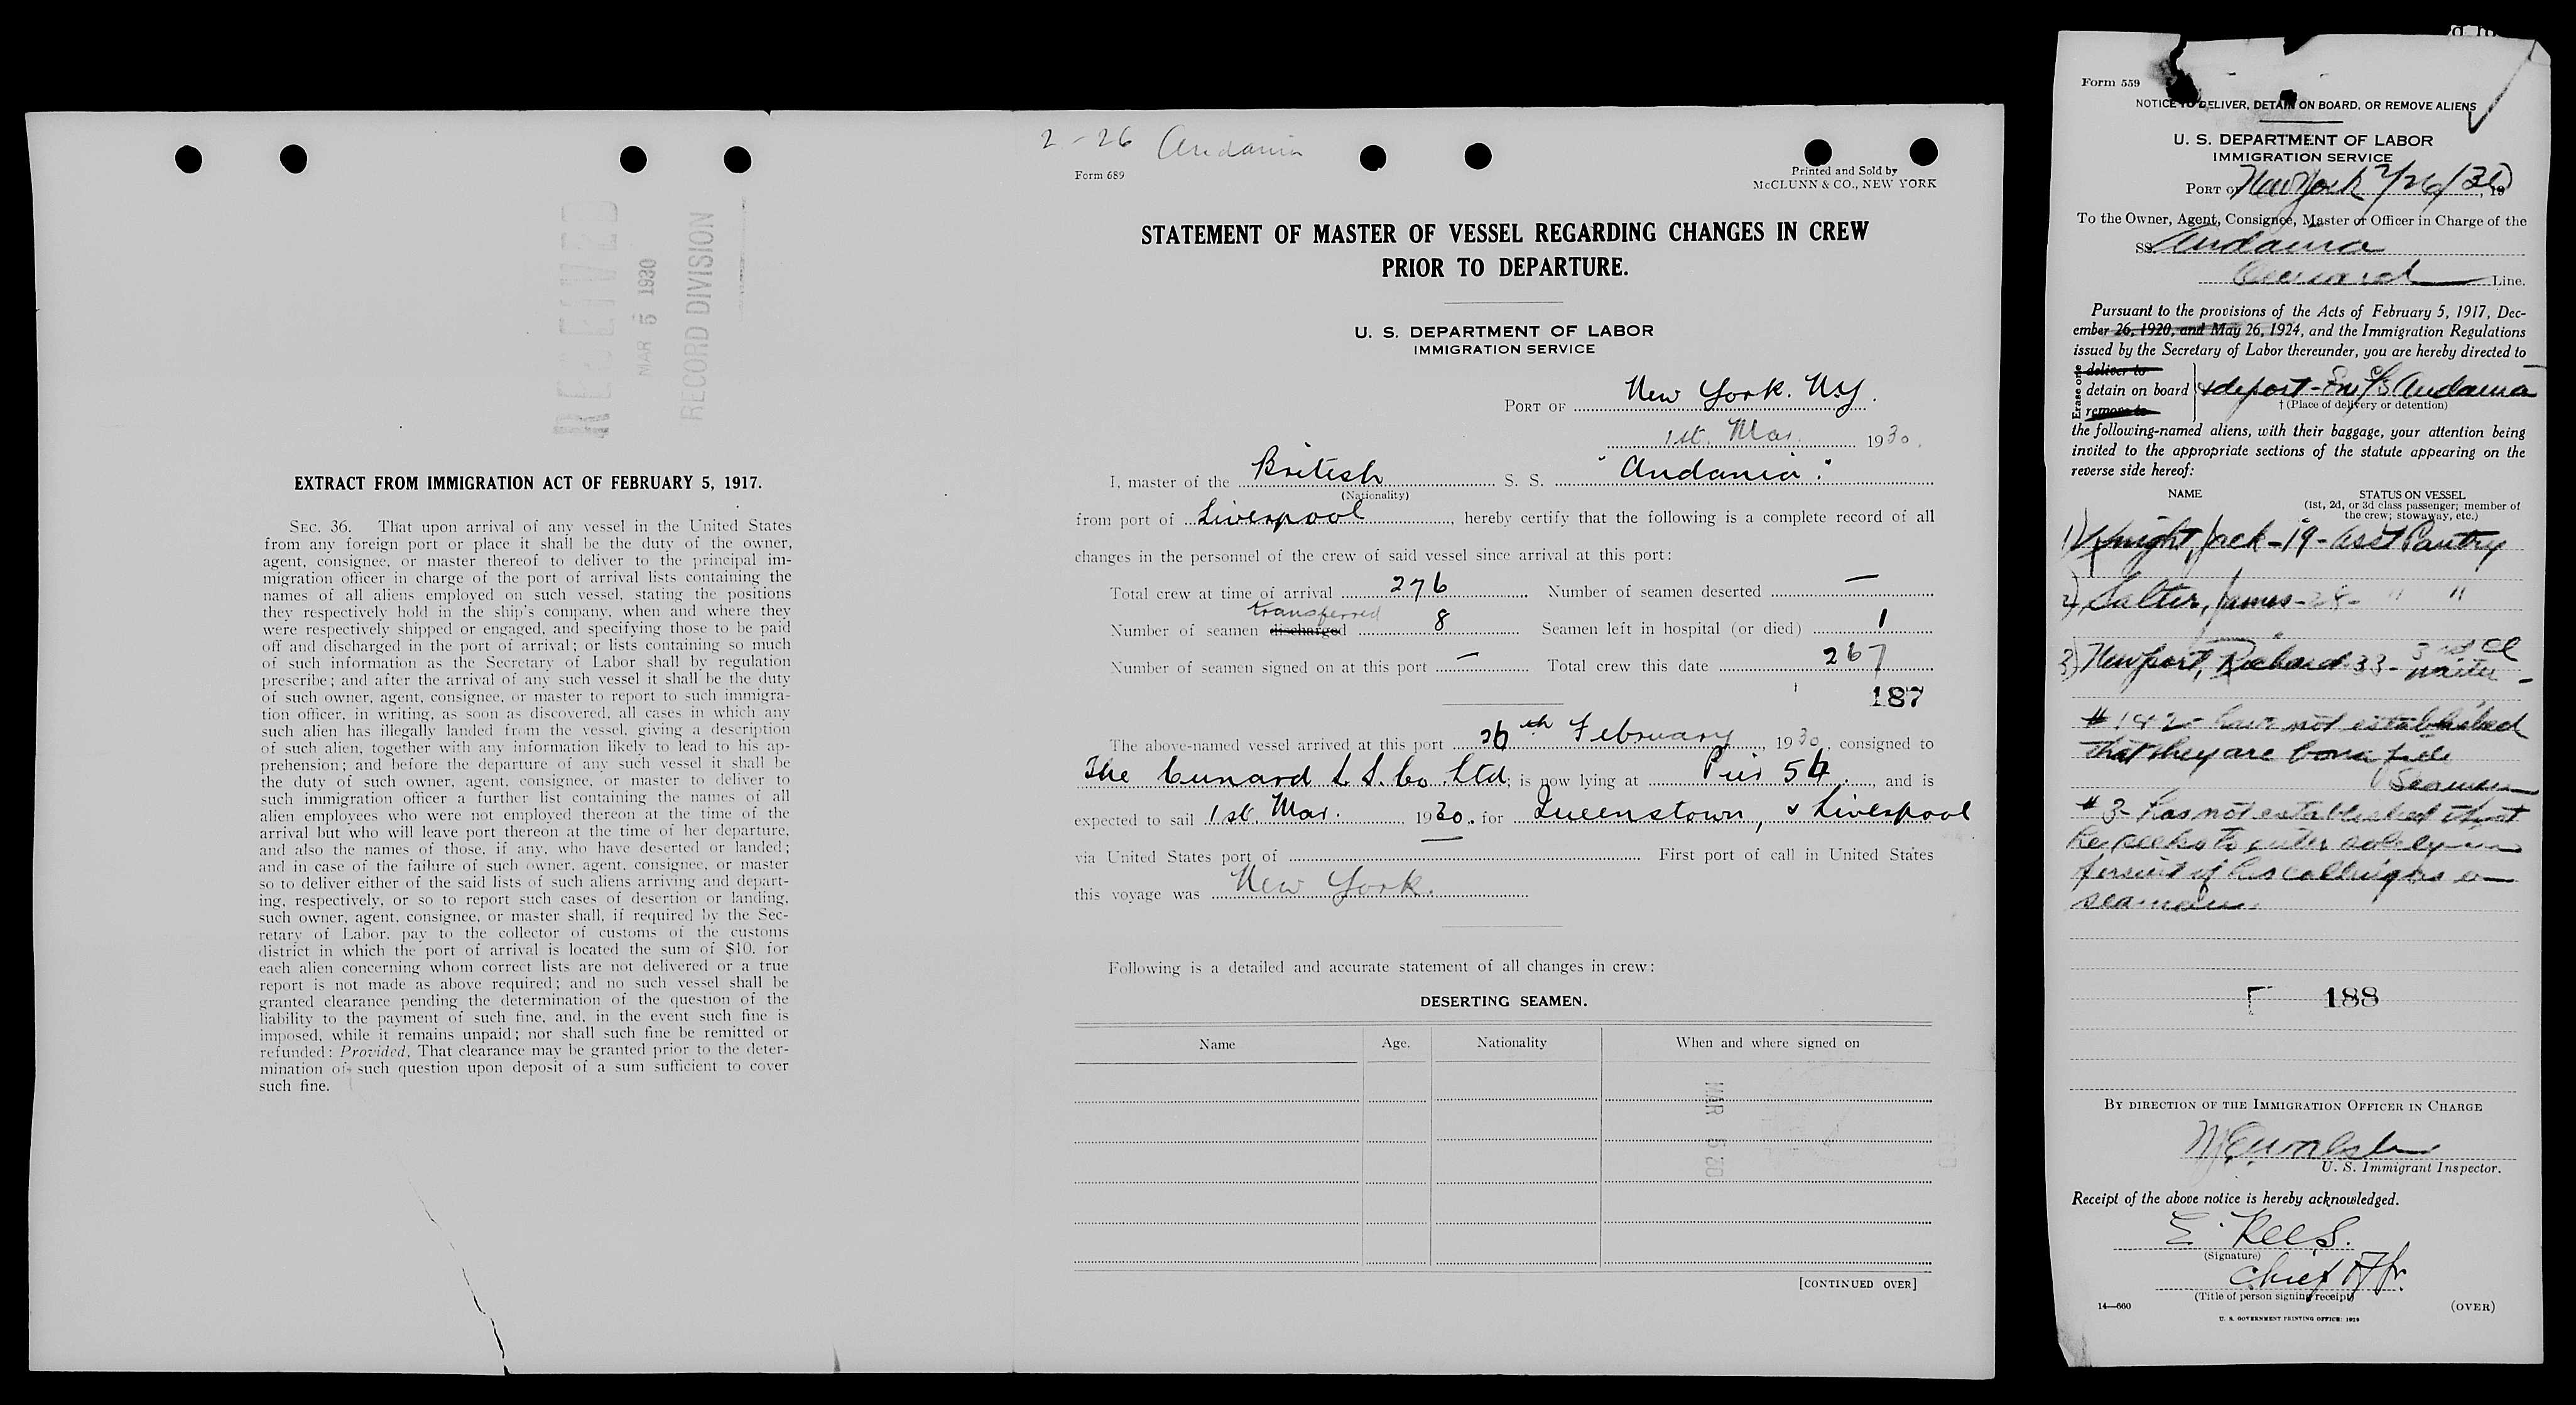 RECEIVED
MAR 5 1930
RECORD DIVISION
EXTRACT FROM IMMIGRATION ACT OF FEBRUARY 5, 1917.
SEC. 36. That upon arrival of any vessel in the United States
from any foreign port or place it shall be the duty of the owner,
agent, consignee, or master thereof to deliver to the principal im-
migration officer in charge of the port of arrival lists containing the
names of all aliens employed on such vessel, stating the positions
they respectively hold in the ship's company, when and where they
were respectively shipped or engaged, and specifying those to be paid
off and discharged in the port of arrival; or lists containing so much
of such information as the Secretary of Labor shall by regulation
prescribe; and after the arrival of any such vessel it shall be the duty
of such owner, agent, consignee, or master to report to such immigra-
tion officer, in writing, as soon as discovered, all cases in which any
such alien has illegally landed from the vessel, giving a description
of such alien, together with any information likely to lead to his ap-
prehension; and before the departure of any such vessel it shall be
the duty of such owner, agent, consignee, or master to deliver to
such immigration officer a further list containing the names of all
alien employees who were not employed thereon at the time of the
arrival but who will leave port thereon at the time of her departure,
and also the names of those, if any, who have deserted or landed;
and in case of the failure of such owner, agent, consignee, or master
so to deliver either of the said lists of such aliens arriving and depart-
ing, respectively, or so to report such cases of desertion or landing,
such owner, agent, consignee, or master shall, if required by the Sec-
retary of Labor, pay to the collector of customs of the customs
district in which the port of arrival is located the sum of $10. for
each alien concerning whom correct lists are not delivered or a true
report is not made as above required; and no such vessel shall be
granted clearance pending the determination of the question of the
liability to the payment of such fine, and, in the event such fine is
imposed, while it remains unpaid; nor shall such fine be remitted or
refunded: Provided, That clearance may be granted prior to the deter-
mination of such question upon deposit of a sum sufficient to cover
such fine.
2 - 26 Andania
Form 689
Printed and Sold by
McCLUNN & CO., NEW YORK
STATEMENT OF MASTER OF VESSEL REGARDING CHANGES IN CREW
PRIOR TO DEPARTURE.
U. S. DEPARTMENT OF LABOR
IMMIGRATION SERVICE
PORT OF New York. N.Y.
1st. Mar. 1930.
I, master of the British S. S. "Andania".
(Nationality)
from port of Liverpool, hereby certify that the following is a complete record of all
changes in the personnel of the crew of said vessel since arrival at this port:
Total crew at time of arrival 276 Number of seamen deserted —
transferred
Number of seamen discharged 8 Seamen left in hospital (or died) 1
Number of seamen signed on at this port — Total crew this date 267
187
The above-named vessel arrived at this port 26th February, 1930, consigned to
The Cunard S. S. Co. Ltd; is now lying at Pier 54, and is
expected to sail 1st. Mar. 1930. for Queenstown, & Liverpool
via United States port of First port of call in United States
this voyage was New York.
Following is a detailed and accurate statement of all changes in crew:
DESERTING SEAMEN.
Name Age. Nationality When and where signed on
MAR 5 30
[CONTINUED OVER]
Form 559
NOTICE TO DELIVER, DETAIN ON BOARD, OR REMOVE ALIENS
U. S. DEPARTMENT OF LABOR
IMMIGRATION SERVICE
PORT OF New York 2/26/30, 19
To the Owner, Agent, Consignee, Master or Officer in Charge of the
SS. Andania
Cunard Line.
Pursuant to the provisions of the Acts of February 5, 1917, Dec-
ember 26, 1920, and May 26, 1924, and the Immigration Regulations
issued by the Secretary of Labor thereunder, you are hereby directed to
Erase one
deliver to
detain on board & deport - on S/S Andania
remove to
† (Place of delivery or detention)
the following-named aliens, with their baggage, your attention being
invited to the appropriate sections of the statute appearing on the
reverse side hereof:
NAME STATUS ON VESSEL
(1st, 2d, or 3d class passenger; member of
the crew; stowaway, etc.)
1) Knight, Jack - 19 - asst Pantry
2) Salter, James - 28 - " "
3) Newport, Richard 33 - 3rd Cl
waiter -
# 1 & 2 - have not established
that they are bona fide
Seamen
# 3 - has not established that
he seeks to enter solely in
pursuit of his calling as a
seaman.
188
BY DIRECTION OF THE IMMIGRATION OFFICER IN CHARGE
U. S. Immigrant Inspector.
Receipt of the above notice is hereby acknowledged.
E. Rees.
(Signature)
Chief
(Title of person signing receipt)
14—660
(OVER)
U. S. GOVERNMENT PRINTING OFFICE: 1929